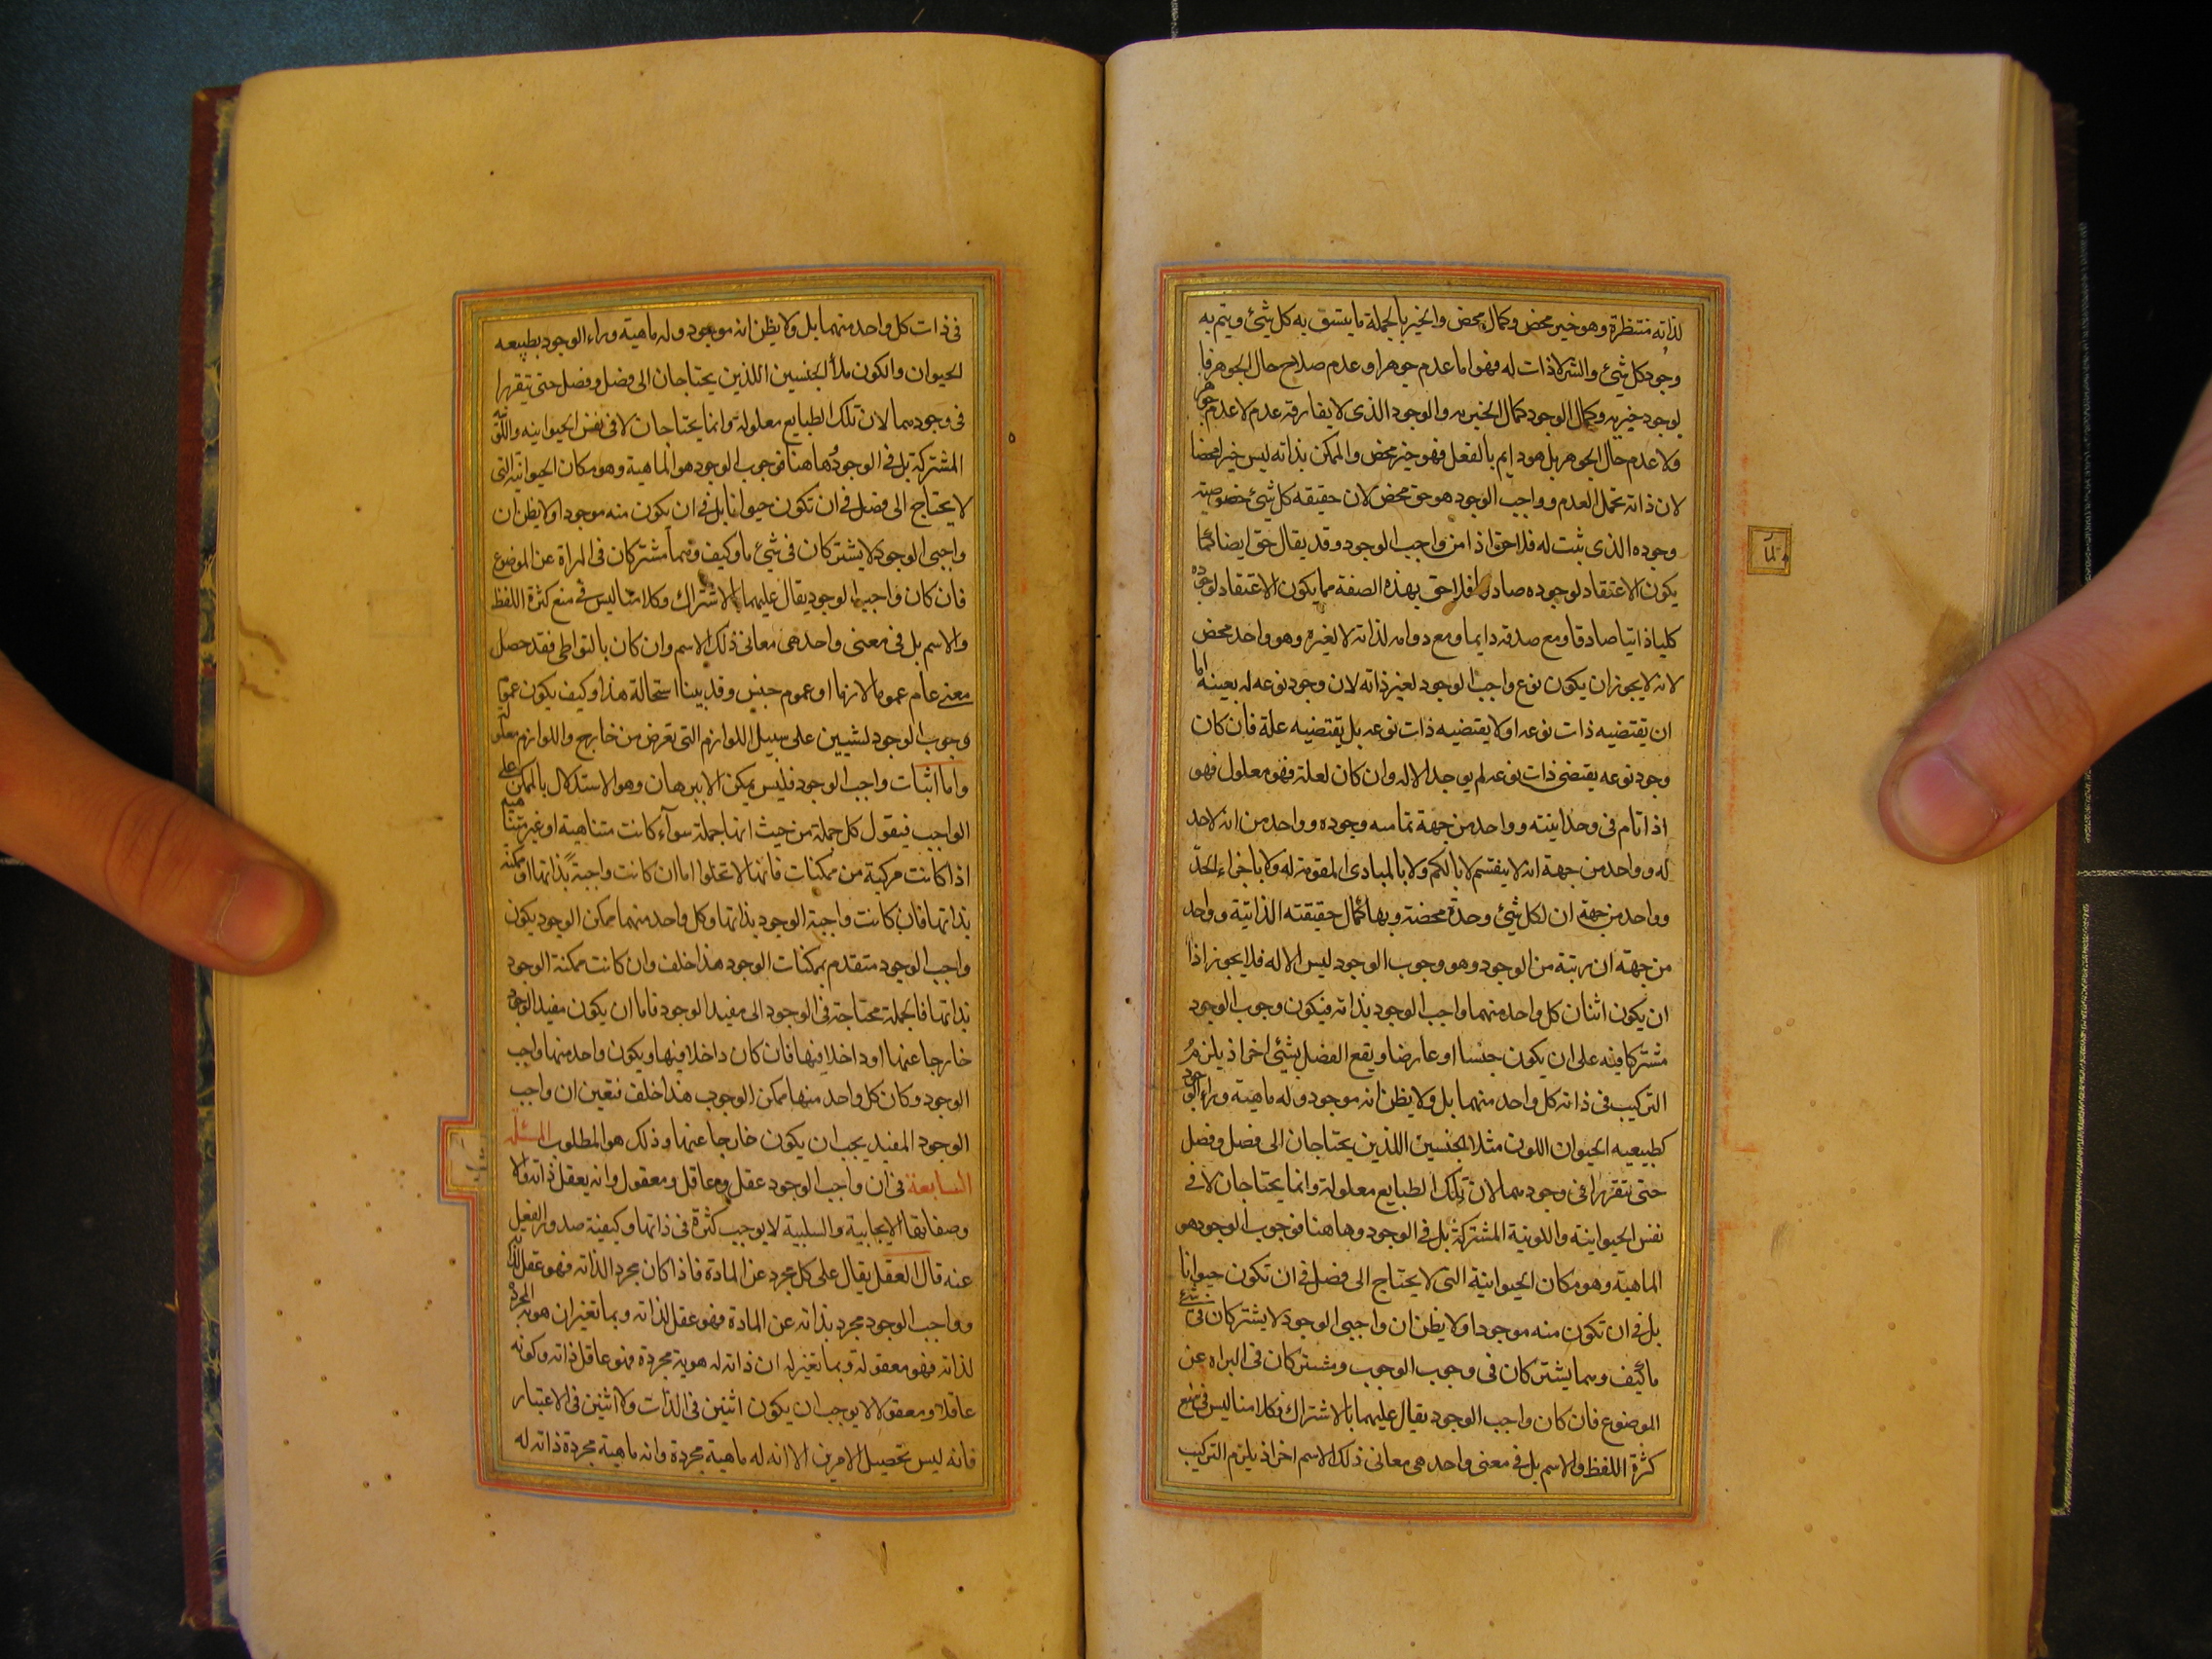 لذاته منتظرة وهو خير محض وكمال محض والخير بالجملة ما يتشوق به كل شئ ويتم به
وجود كل شئ والشر لا ذات له فهو اما عدم جوهر او عدم صلاح حال الجوهر فا
لوجود خيرية وكمال الوجود كمال الخيرية والوجود الذى لا يقارنه عدم لا عدم جوهر
ولا عدم حال الجوهر بل هو دايم بالفعل فهو خير محض والممكن بذاته ليس خيرا محضا
لان ذاته تحمل العدم وواجب الوجود هو حق محض لان حقيقه كل شئ خصوصية
وجوده الذى ثبت له فلا حق اذا من واجب الوجود وقد يقال حق ايضا لما
يكون الاعتقاد لوجوده صادقا فلا حق بهذه الصفة مما يكون الاعتقاد لوجوده
كليا ذاتيا صادقا ومع صدقه دايما ومع دوامه لذاته لا لغيره وهو واحد محض
لانه لا يجوز ان يكون نوع واجب الوجود لغير ذاته لان وجود نوعه له بعينه اما
ان يقتضيه ذات نوعه او لا يقتضيه ذات نوعه بل يقتضيه علة فان كان
وجود نوعه يقتضى ذات نوعه لم يوجد الا له وان كان لعلة فهو معلول فهو
اذا تام فى وحدانيته وواحد من جهة تماميه وجوده وواحد من انه لا حد
له وواحد من جهة انه لا ينقسم لا بالكم ولا بالمبادى المقومة له ولا باجزاء الحد
وواحد من جهة ان لكل شئ وحدة محضة وبها كمال حقيقته الذاتية وواحد
من جهة ان مرتبة من الوجود وهو وجوب الوجود ليس الا له فلا يجوز اذا
ان يكون اثنان كل واحد منهما واجب الوجود بذاته فيكون وجوب الوجود
مشتركا فيه على ان يكون جنسا او عارضا ويقع الفصل بشئ اخر اذ يلزم
التركيب فى ذاته كل واحد منهما بل ولا يظن انه موجود وله ماهية وراء الوجود
كطبيعيه الحيوان اللون مثلا الجنسين اللذين يحتاجان الى فصل وفصل
حتى تتقررا فى وجودهما لان تلك الطبايع معلولة وانما يحتاجان لا فى
نفس الحيوانية واللونية المشتركة بل فى الوجود وهاهنا فوجوب الوجود هو
الماهية وهو مكان الحيوانية التى لا يحتاج الى فصل فى ان تكون حيوانا
بل فى ان تكون منه موجودا ولا يظن ان واجبى الوجود لا يشتركان فى شئ
ما كيف وهما يشتركان فى وجوب الوجوب ومشتركان فى البراه عن
الموضوع فان كان واجب الوجود يقال عليهما بالاشتراك فكلامنا ليس فى منع
كثرة اللفظ والاسم بل فى معنى واحد هى معانى ذلك الاسم اخر اذ يلزم التركيب
فى ذات كل واحد منهما بل ولا يظن انه موجود وله ماهية وراء الوجود بطبيعه
الحيوان والكون ملأ الجنسين اللذين يحتاجان الى فصل وفصل حتى تتقررا
فى وجودهما لان تلك الطبايع معلولة وانما يحتاجان لا فى نفس الحيوانيه
المشتركة بل فى الوجود وهاهنا فوجوب الوجود هو الماهية وهو مكان الحيوانية التى
لا يحتاج الى فصل فى ان تكون حيوانا بل فى ان يكون منه موجودا ولا يظن ان
واجبى الوجود لا يشتركان فى شئ ما وكيف وهما مشتركان فى المراة عن الموضوع
فان كان واجب الوجود يقال عليهما بالاشتراك وكلامنا ليس فى منع كثرة اللفظ
والاسم بل فى معنى واحد هى معانى ذلك الاسم وان كان بالتواطى فقد حصل
معنى عام عموم لازما او عموم جنس وقد بينا استحالة هذا وكيف يكون عموم
وجوب الوجود لشيين على سبيل اللوازم التى تعرض من خارج واللوازم معلولة
واما اثبات واجب الوجود فليس يمكن الا ببرهان وهو الاستدلال بالممكن على
الواجب فيقول كل جملة من حيث انها جملة سوآء كانت متناهية او غير متناهية
اذا كانت مركبة من ممكنات فانها لا تخلوا اما ان كانت واجبة بذاتها او ممكنه
بذاتها فان كانت واجبة الوجود بذاتها وكل واحد منهما ممكن الوجود يكون
واجب الوجود متقدم بممكنات الوجود هذا خلف وان كانت ممكنة الوجود
بذاتها فالجملة محتاجة فى الوجود الى مفيد الوجود فاما ان يكون مفيد الوجود
خارجا عنها او داخلا فيها فان كان داخلا فيها ويكون واحد منها واجب
الوجود وكان كل واحد منها ممكن الوجوب هذا خلف فتعين ان واجب
الوجود المفيد يجب ان يكون خارجا عنها وذلك هو المطلوب المسئلة
السابعة فى ان واجب الوجود عقل وعاقل ومعقول وانه يعقل ذاته ولا
وصفاتها الايجابية والسلبية لا يوجب كثرة فى ذاتها وكيفية صدور الفعل
عنه قال العقل يقال على كل مجرد عن المادة فاذا كان مجرد الذاته فهو عقل لذاته
وواجب الوجود مجرد بذاته عن المادة فهو عقل لذاته وبما تعتبر ان هويه المجردة
لذاته فهو معقولة وبما تعتبر له ان ذاته له هوية مجردة فهو عاقل ذاته وكونه
عاقلا ومعقولا لا يوجب ان يكون اثنين فى الذات ولا اثنين فى الاعتبار
فانه ليس تحصيل الامرين الا انه له ماهية مجردة وانه ماهية مجردة ذاته له